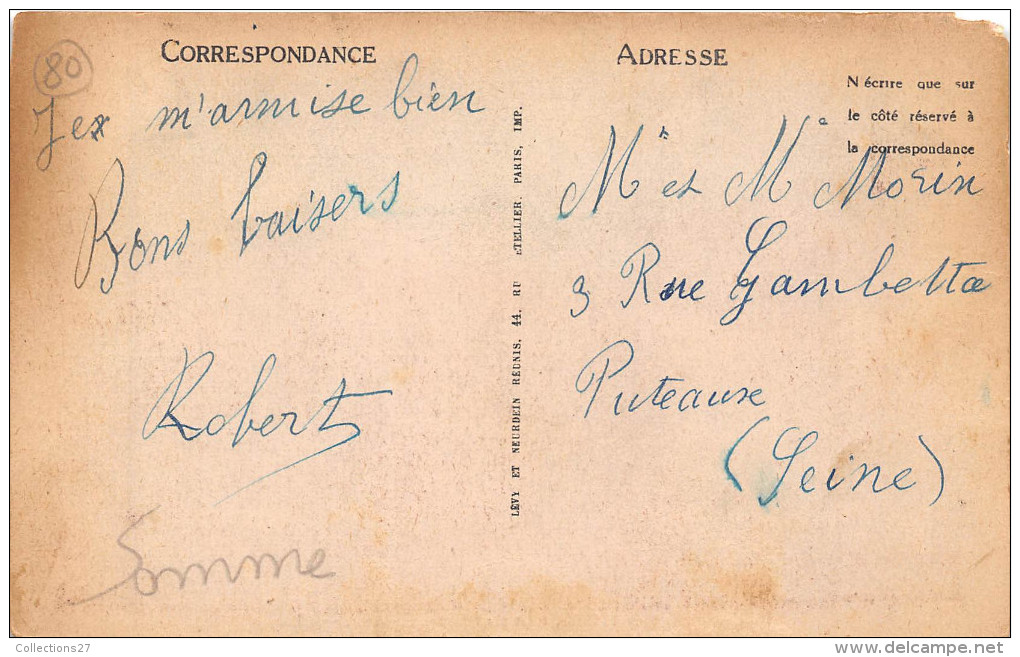 80
CORRESPONDANCE
Jex m'armise bien
Bons baisers
Robert
Somme
LÉVY ET NEURDEIN RÉUNIS, 44, RU ETELLIER, PARIS, IMP.
ADRESSE
N écrire que sur
le côté réservé à
la correspondance
Mr et Me Morin
3 Rue Gambetta
Puteaux
(Seine)
Collections27
www.delcampe.net